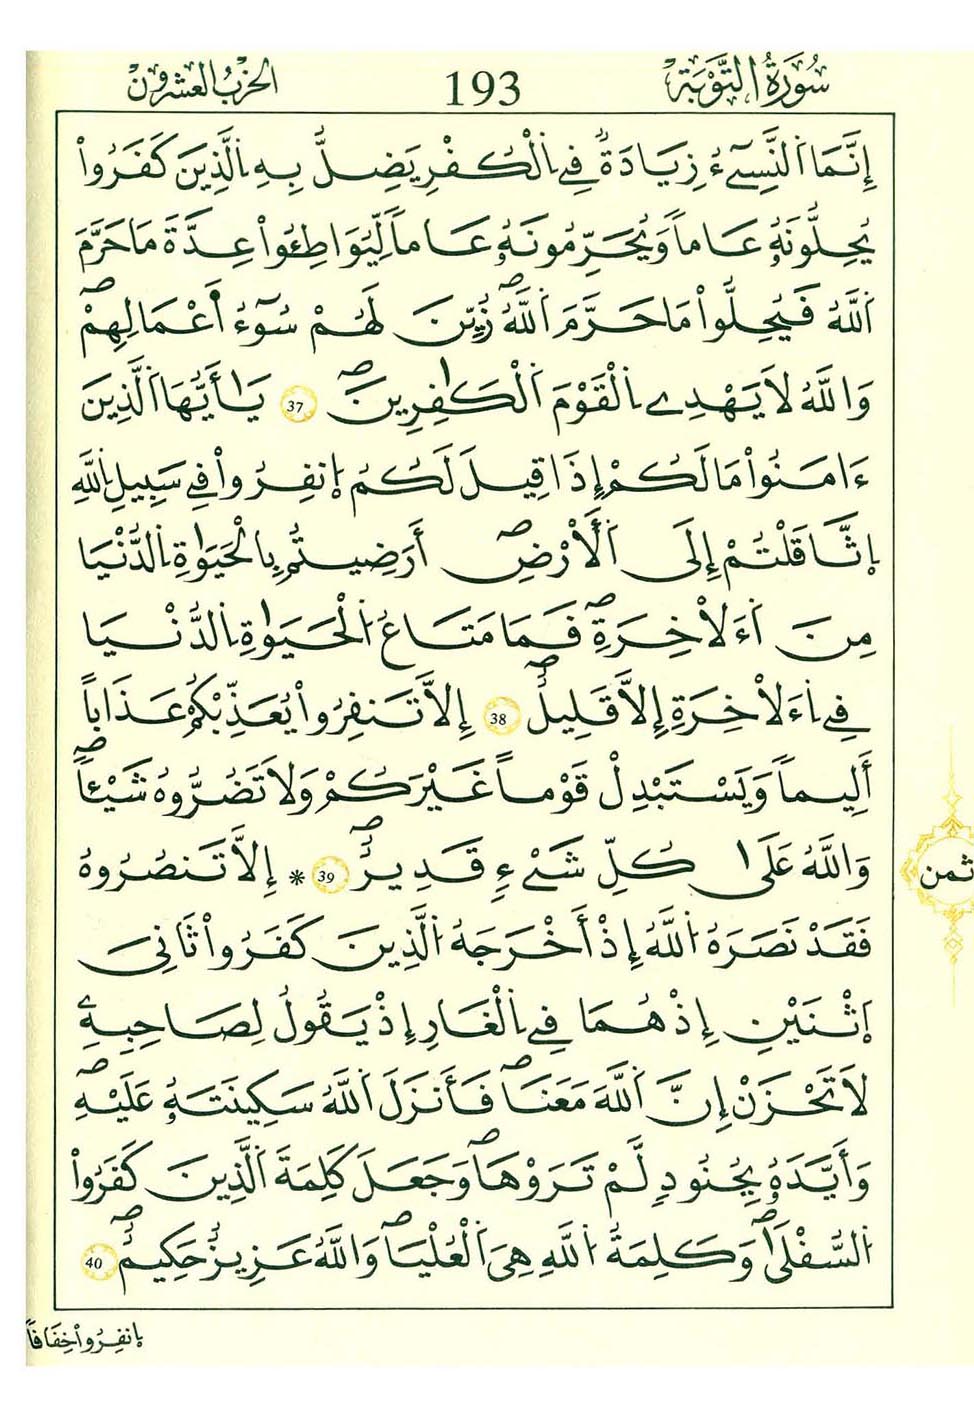 سُورَةُ التَّوْبَةِ
193
الحِزْبُ العِشْرُونَ
إِنَّمَا اَ۬لنَّسِےٓءُ زِيَادَةٞ فِے اِ۬لْكُفْرِ يَضِلُّ بِهِ اِ۬لذِينَ كَفَرُواْ
يُحِلُّونَهُۥ عَاماٗ وَيُحَرِّمُونَهُۥ عَاماٗ لِّيُوَاطِـُٔواْ عِدَّةَ مَا حَرَّمَ
اَ۬للَّهُ فَيُحِلُّواْ مَا حَرَّمَ اَ۬للَّهُۖ زُيِّنَ لَهُمْ سُوٓءُ اَ۬عْمَٰلِهِمْۖ
وَاللَّهُ لَا يَهْدِے اِ۬لْقَوْمَ اَ۬لْكَٰفِرِينَۖ 37 يَٰٓأَيُّهَا اَ۬لذِينَ
ءَامَنُواْ مَا لَكُمْ إِذَا قِيلَ لَكُمُ اُ۪نفِرُواْ فِے سَبِيلِ اِ۬للَّهِ
اِ۪ثَّاقَلْتُمْ إِلَى اَ۬لَارْضِۖ أَرَضِيتُم بِالْحَيَوٰةِ اِ۬لدُّنْيَا
مِنَ اَ۬لَاخِرَةِۖ فَمَا مَتَٰعُ اُ۬لْحَيَوٰةِ اِ۬لدُّنْيَا
فِے اِ۬لَاخِرَةِ إِلَّا قَلِيلٌۖ 38 اِلَّا تَنفِرُواْ يُعَذِّبْكُمْ عَذَاباً
أَلِيماٗ وَيَسْتَبْدِلْ قَوْماً غَيْرَكُمْ وَلَا تَضُرُّوهُ شَيْـٔاٗۖ
وَاللَّهُ عَلَىٰ كُلِّ شَےْءٖ قَدِيرٌۖ 39 * اِلَّا تَنصُرُوهُ
فَقَدْ نَصَرَهُ اُ۬للَّهُ إِذَ اَخْرَجَهُ اُ۬لذِينَ كَفَرُواْ ثَانِيَ
اَ۪ثْنَيْنِ إِذْ هُمَا فِے اِ۬لْغَارِ إِذْ يَقُولُ لِصَٰحِبِهِۦ
لَا تَحْزَنِ اِنَّ اَ۬للَّهَ مَعَنَاۖ فَأَنزَلَ اَ۬للَّهُ سَكِينَتَهُۥ عَلَيْهِۖ
وَأَيَّدَهُۥ بِجُنُودٖ لَّمْ تَرَوْهَاۖ وَجَعَلَ كَلِمَةَ اَ۬لذِينَ كَفَرُواْ
اُ۬لسُّفْلَىٰۖ وَكَلِمَةُ اُ۬للَّهِ هِيَ اَ۬لْعُلْيَاۖ وَاللَّهُ عَزِيزٌ حَكِيمٌۖ 40
ثمن
اِ۪نفِرُواْ خِفَافاٗ